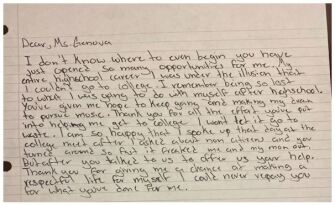 Dear, Ms. Genova
I don't know where to even begin you have
just opened so many opportunities for me. My
entire highschool career I was under the illusion that
I couldn't go to college. I remember being so lost
to what I was going to do with myself after highschool.
You've given me hope to keep going and making my dream
to pursue music. Thank you for all the effort you've put
into helping me get to college. I wont let it go to
waste. I am so happy that I spoke up that day at the
college meet after I asked about non citizens and you
turned around so fast it freaked me and my mom out.
But after you talked to us to offer us your help.
Thank you for giving me a chance at making a
respectful life for myself. I could never repay you
for what you've done for me.